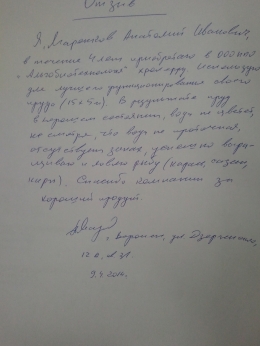 Отзыв
Я, Виталий Иванович,
в течение 4 лет приобретаю в ООО НПО
"Альгобиотехнология" хлореллу. Использую
для лучшего функционирования своего
пруда (15х5м). В результате пруд
в хорошем состоянии, вода не цветёт,
не смотря, что вода не проточная,
отсутствует запах, успешно выра-
щиваю и ловлю рыбу (карася, сазана,
). Спасибо компании за
хороший продукт.
г. Воронеж, ул.
12а,
9.4 2014.